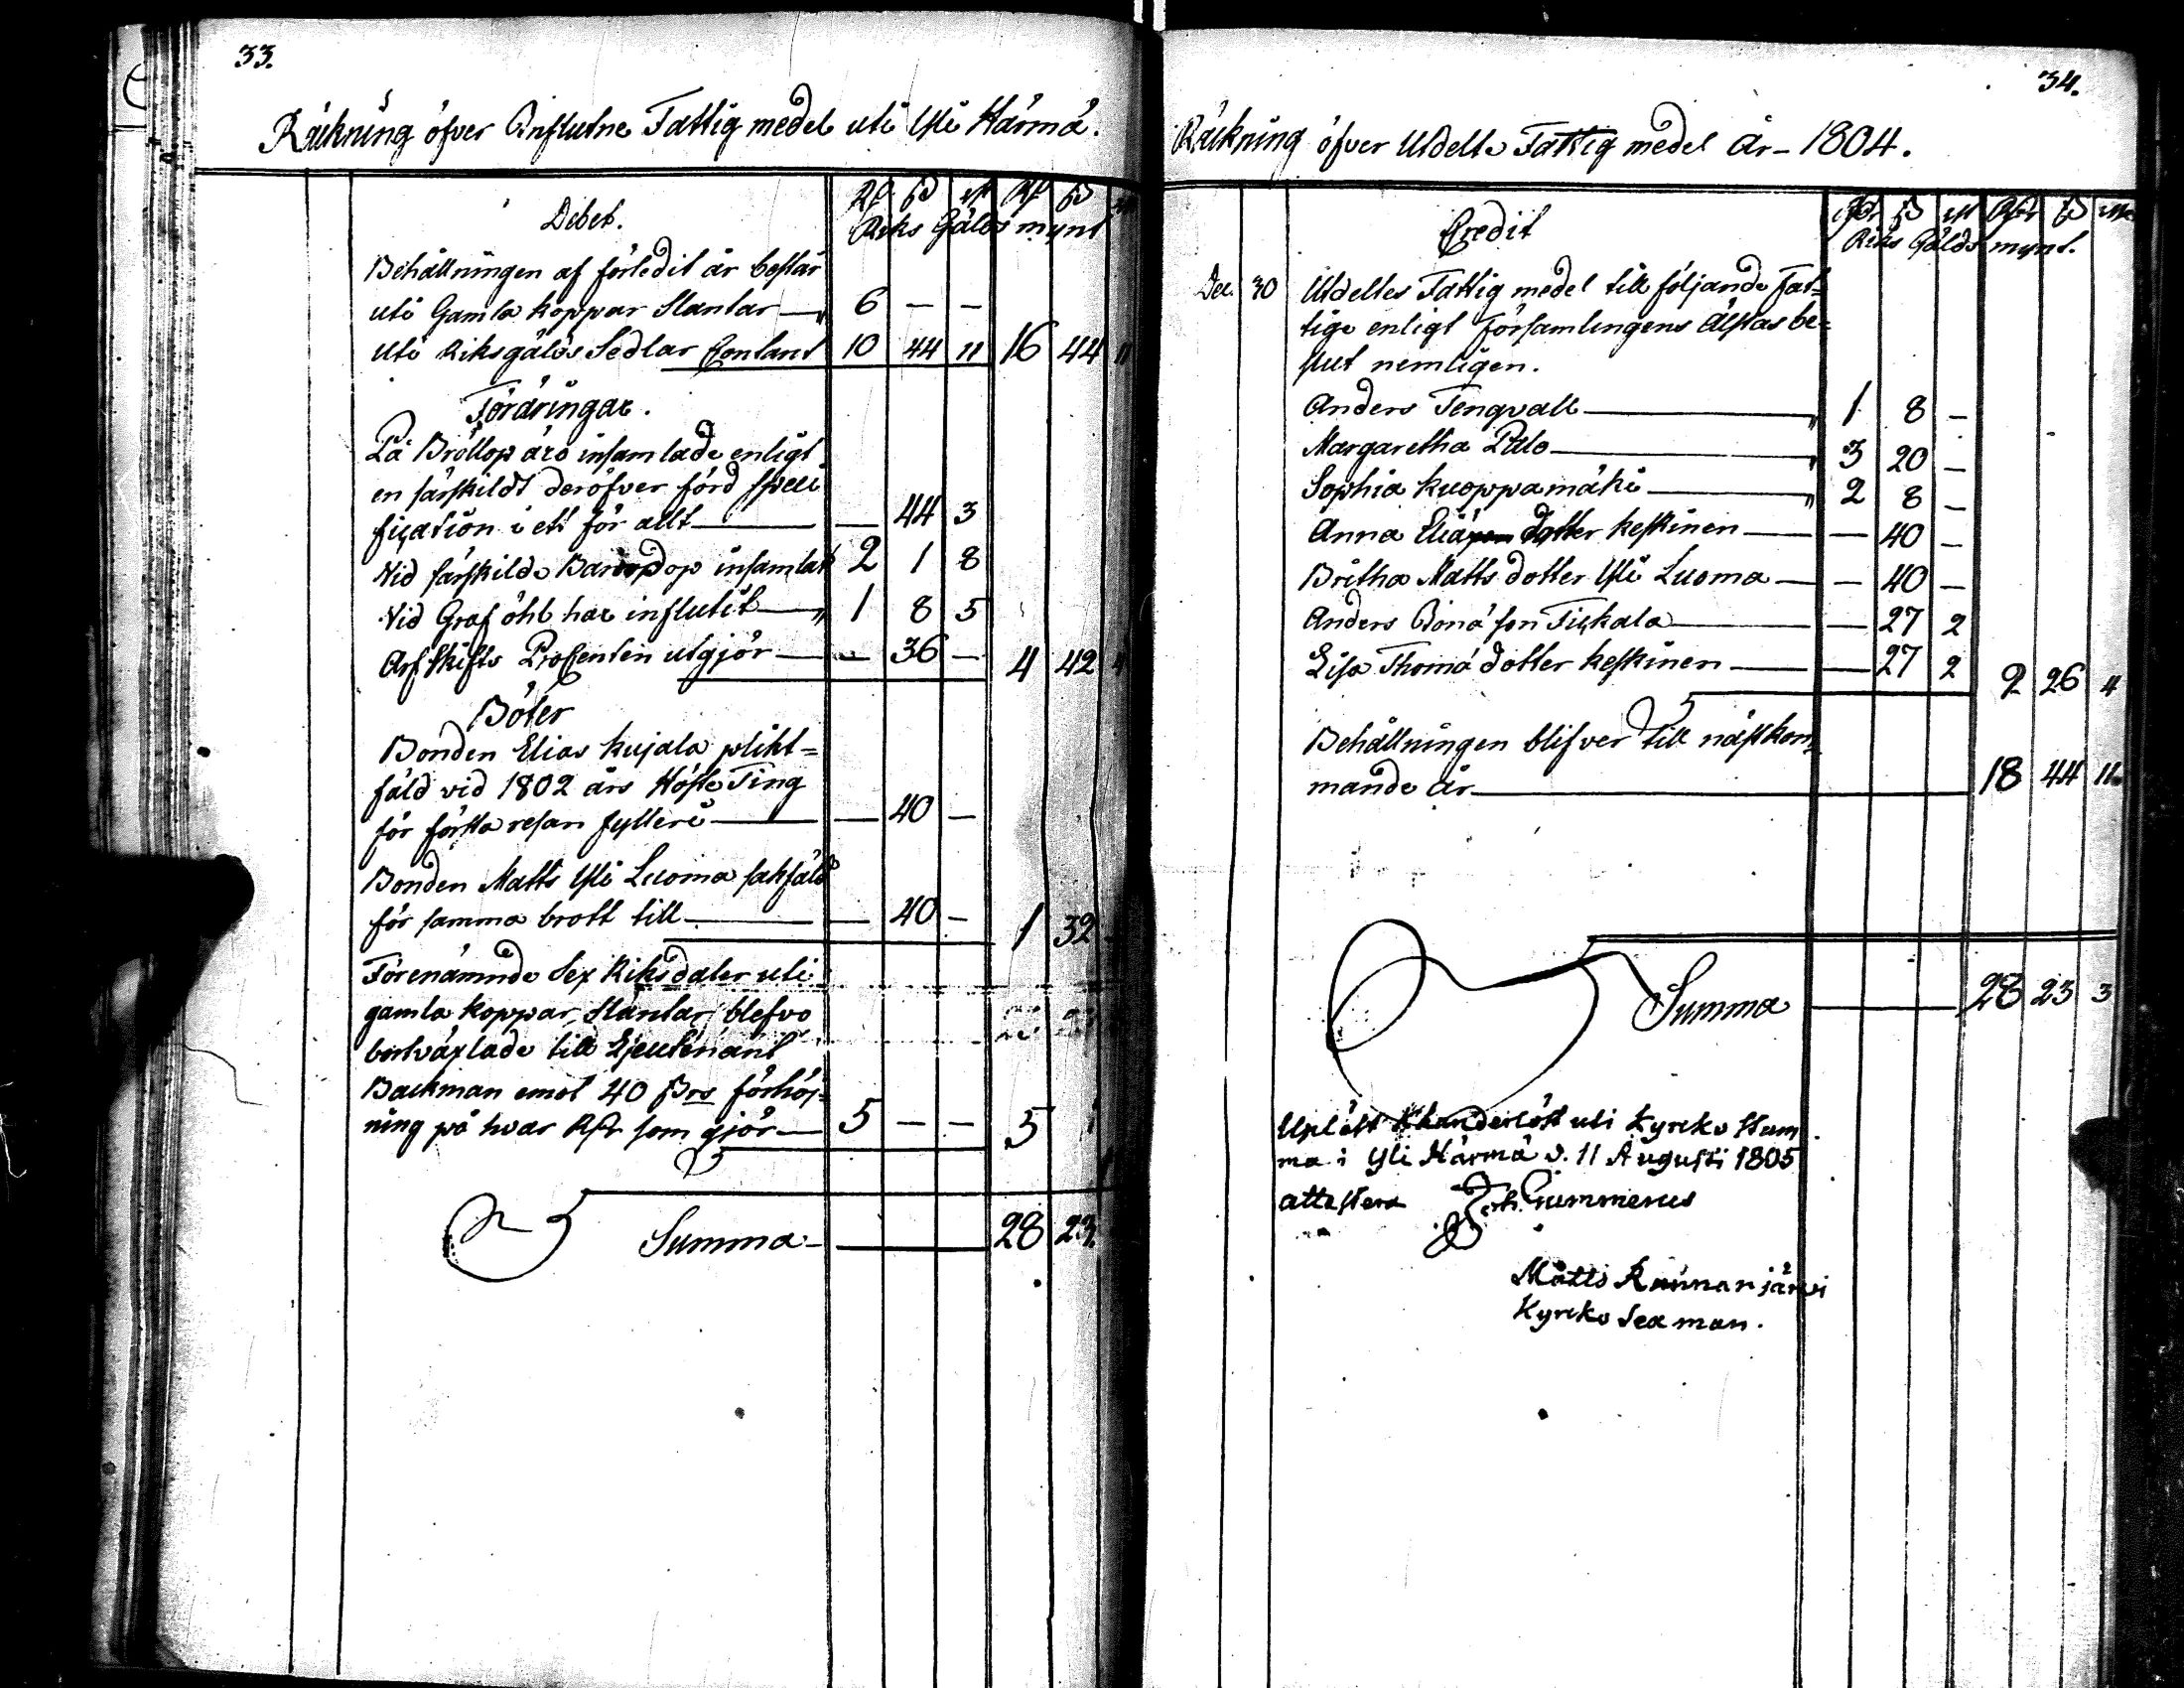 33.
Räkning öfver Influtne Fattig medel uti Yli Härmä.
Debet.
Rd ß rst Rd ß
Riks Gälds mynt
Behållningen af förledit år består
uti Gamla koppar Slantar 6 — —
Uti Riksgälds Sedlar Contant 10 44 11 16 44 11
Fördringar.
På Bröllop äro insamlade enligt
en särskildt deröfver förd speci
fication i ett för allt — 44 3
Vid särskilda Barndop insamlat 2 1 8
Vid Graföhl har influtit 1 8 5
Arfskifts Procenten utgjör — 36 — 4 42 4
Böter
Bonden Elias Kujala plikt=
fäld vid 1802 års Höste Ting
för första resan fylleri — 40 —
Bonden Matts Yli Luoma sakfäld
för samma brott till — 40 — 1 32
Förenämnde Sex Riksdaler uti
gamla koppar Slantar blefvo
bortväxlade till Lieutenant
Backman emot 40 ßrs förhöj=
ning på hvar Rdr som gjör 5 — — 5
Summa 28 23
34.
Räkning öfver Utdelte Fattig medel År 1804.
Credit
Rdr ß rst Rdr ß rst
Riks Gälds mynt.
Dec. 30 Utdeltes Fattig medel till följande Fat=
tige enligt Församlingens Älstas be=
slut nemligen.
Anders Tengvall 1 8 —
Margaretha Palo 3 20 —
Sophia Kuoppamäki 2 8 —
Anna Eliä dotter Keskinen — 40 —
Britha Matts dotter Yli Luoma — 40 —
Anders son — 27 2
Lisa Thomä dotter Keskinen — 27 2 9 26 4
Behållningen blifver till nästkom
mande år 18 44 11
Summa 28 23 3
Uplåst Khanderlöst uti Kyrko Stam
ma i Yli Härmä d. 11 Augusti 1805
attestera Joh. Gummerus
Matts Rannanjärvi
Kyrko Sexman.